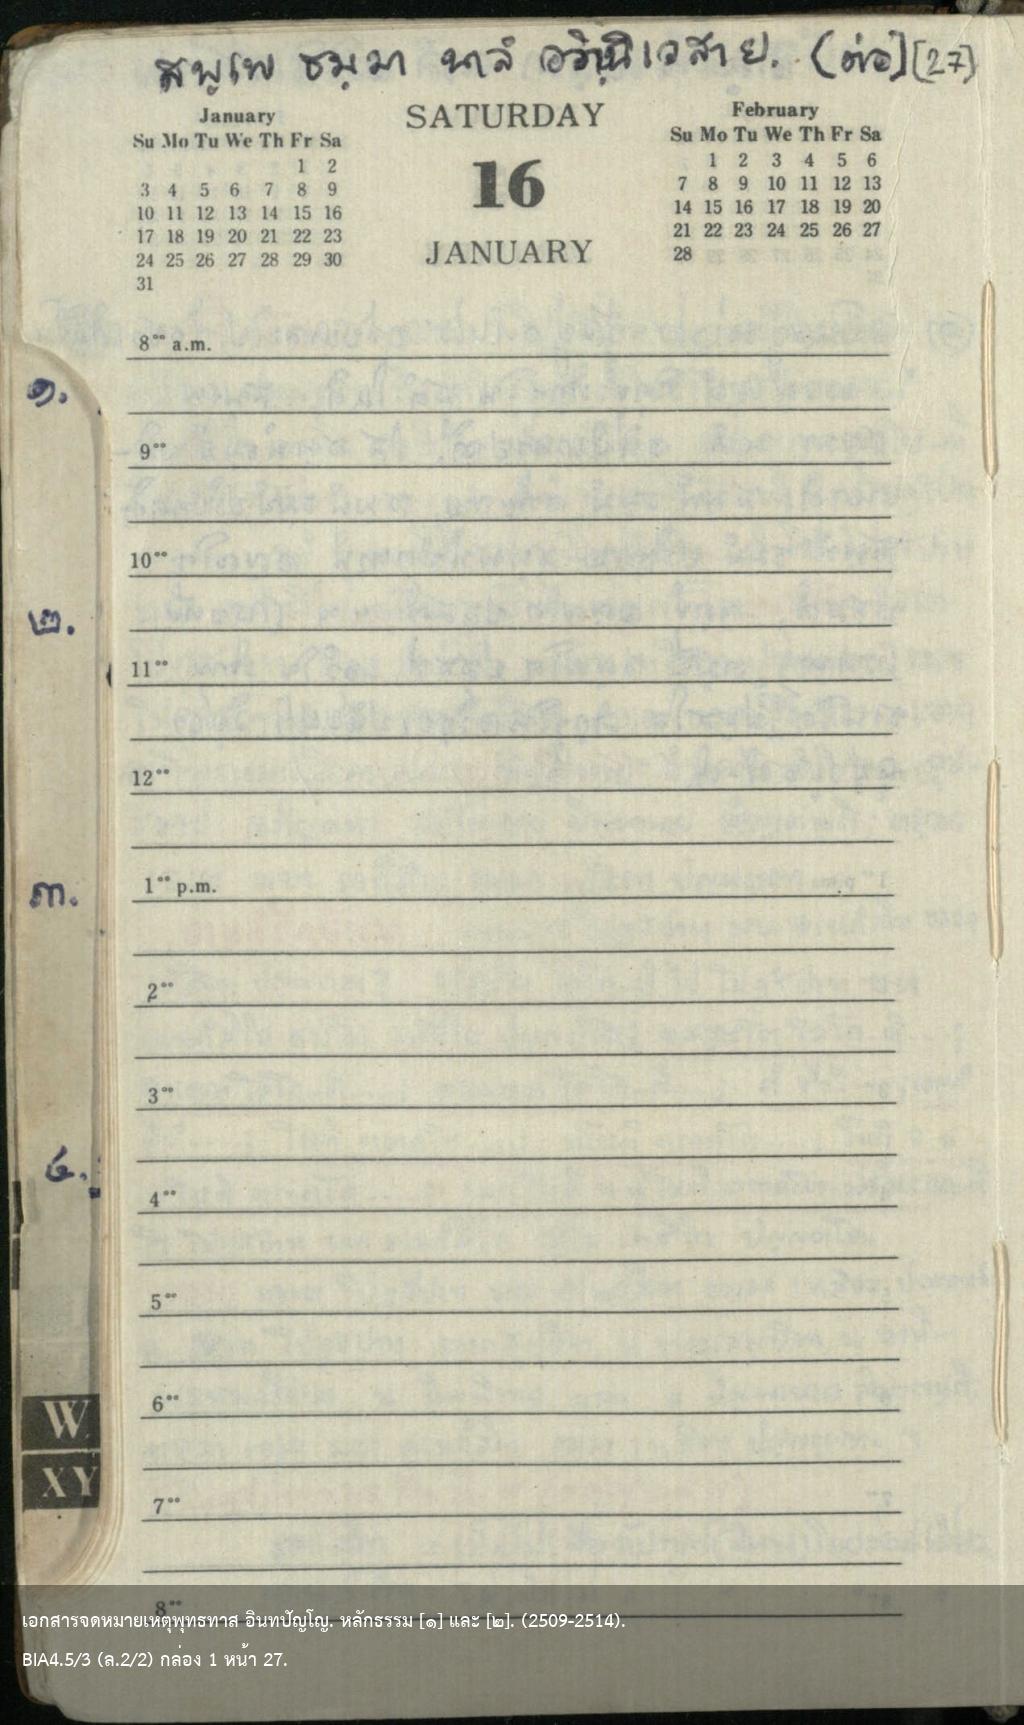 สพฺเพ ธมฺมา นาลํ อภินิเวสาย. (ต่อ) [27]
January
Su Mo Tu We Th Fr Sa
1 2
3 4 5 6 7 8 9
10 11 12 13 14 15 16
17 18 19 20 21 22 23
24 25 26 27 28 29 30
31
SATURDAY
16
JANUARY
February
Su Mo Tu We Th Fr Sa
1 2 3 4 5 6
7 8 9 10 11 12 13
14 15 16 17 18 19 20
21 22 23 24 25 26 27
28
8⁰⁰ a.m.
๑.
9⁰⁰
10⁰⁰
๒.
11⁰⁰
12⁰⁰
1⁰⁰ p.m.
๓.
2⁰⁰
3⁰⁰
๔.
4⁰⁰
5⁰⁰
6⁰⁰
W
XY
7⁰⁰
8⁰⁰
เอกสารจดหมายเหตุพุทธทาส อินทปัญโญ. หลักธรรม [๑] และ [๒]. (2509-2514).
BIA4.5/3 (ล.2/2) กล่อง 1 หน้า 27.